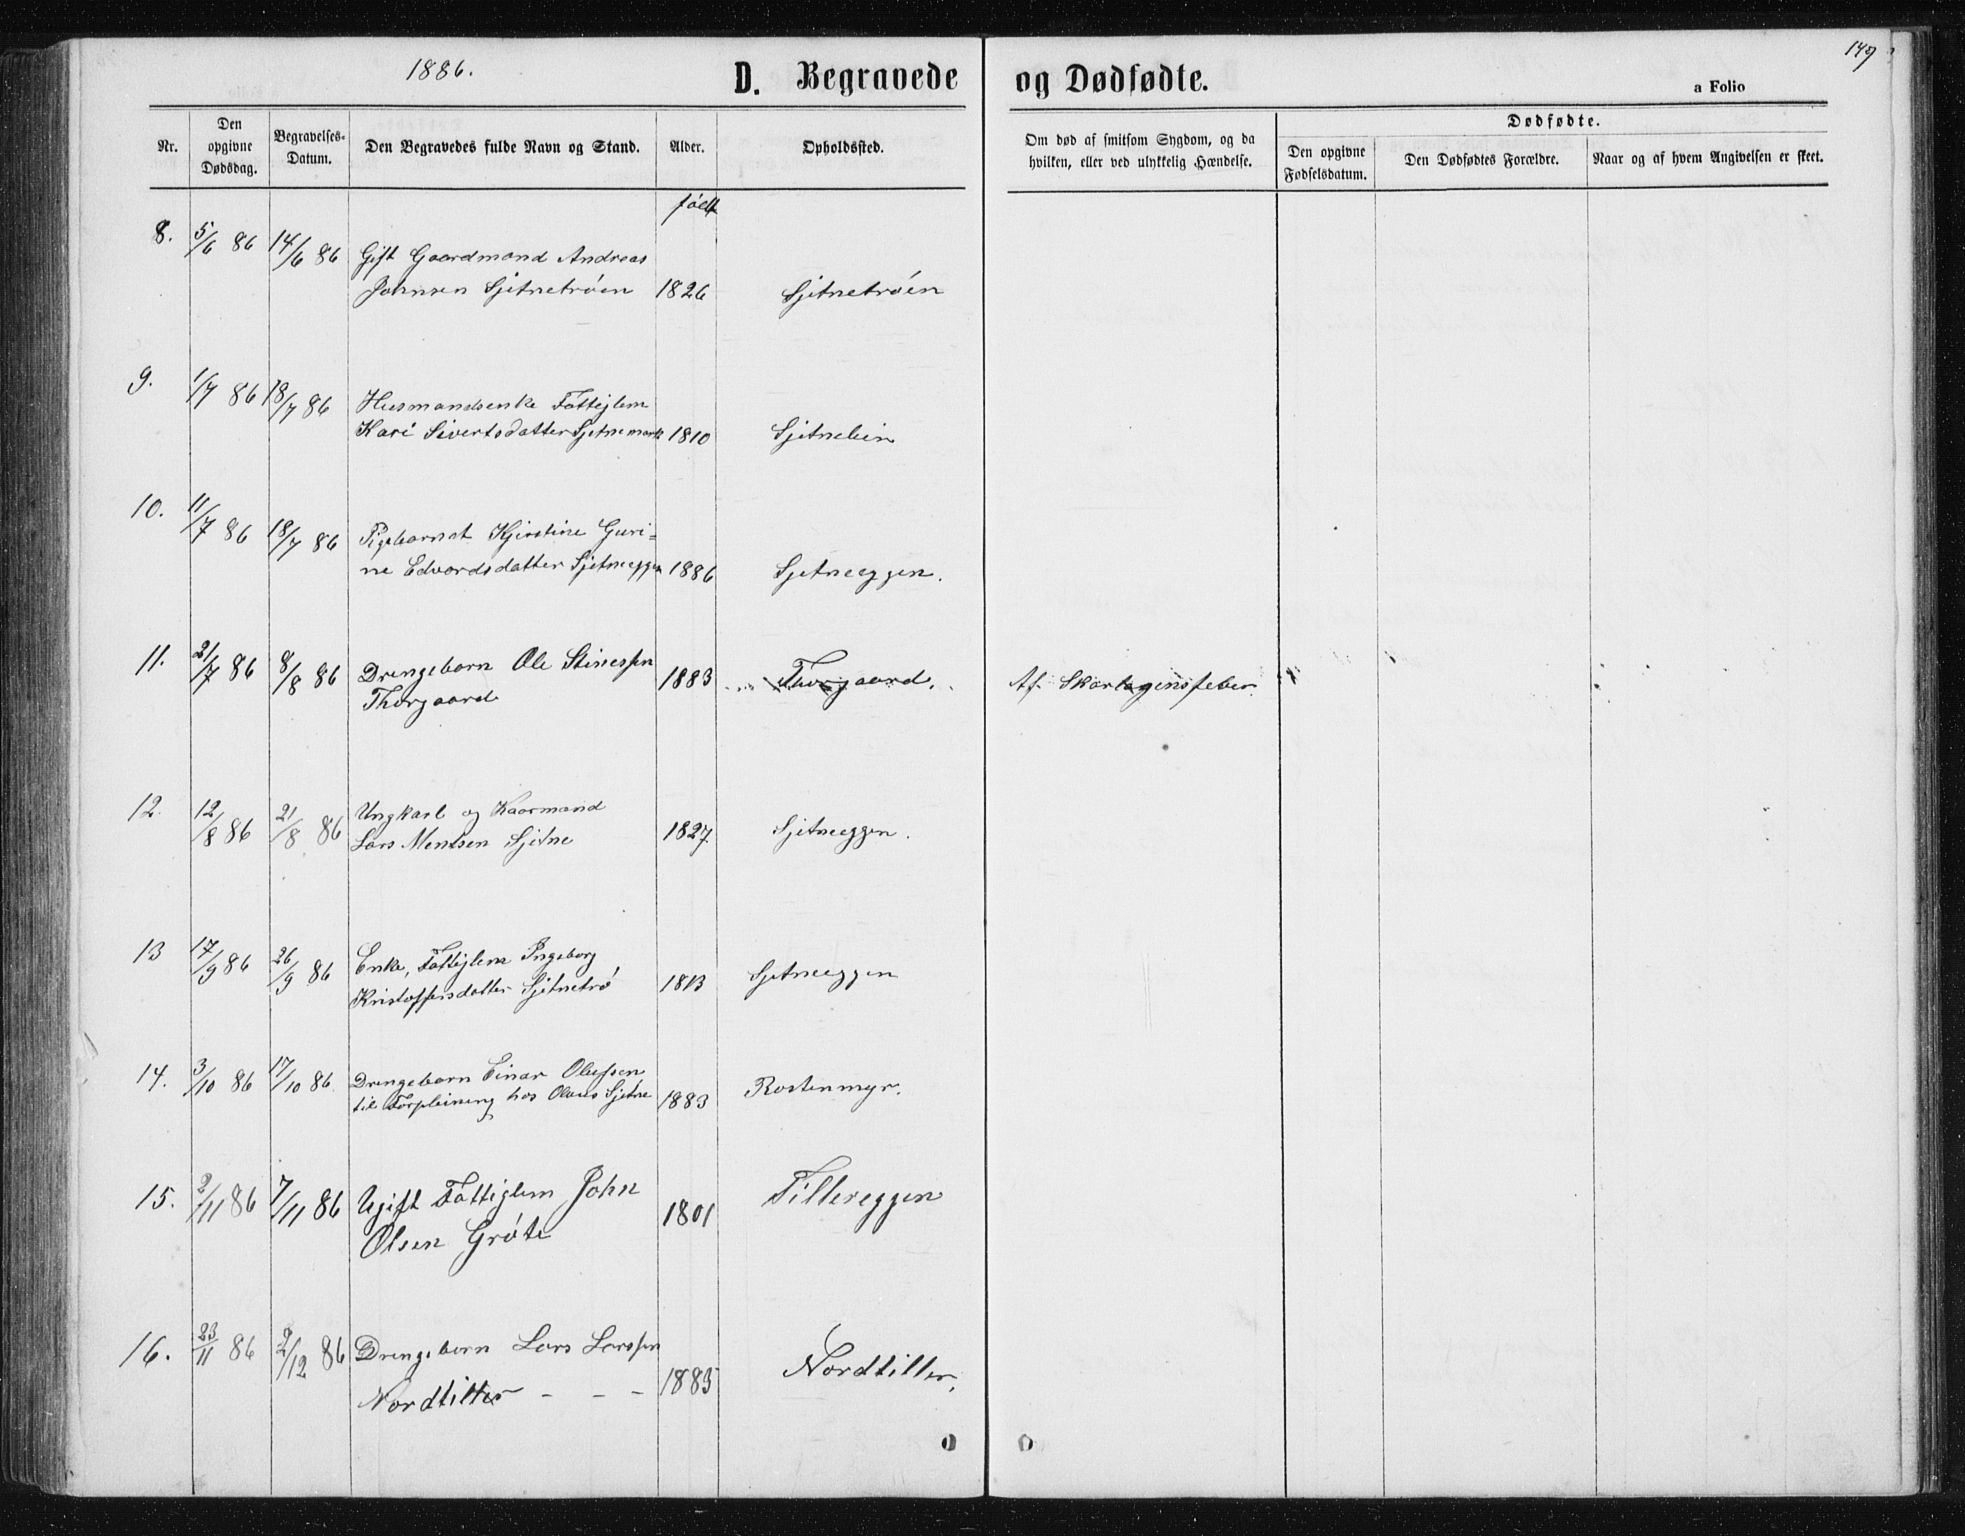 1886.
D. Begravede og Dødfødte.
149
a Folio
Nr.
Den opgivne Dødsdag.
Begravelses-Datum.
Den Begravedes fulde Navn og Stand.
Alder.
Opholdssted.
Om død af smitsom Sygdom, og da hvilken, eller ved ulykkelig Hændelse.
Dødfødte.
Den opgivne Fødselsdatum.
Den Dødfødtes Forældre.
Naar og af hvem Angivelsen er skeet.
født
8. 5/6 86 14/6 86 Gift Gaardmand Andreas
Johnsen Sjetnetrøen 1826 Sjetnetrøen
9. 1/7 86 18/7 86 Husmandsenke Fattiglem
Kari Sivertsdatter Sjetnemark 1810 Sjetnelein
10. 11/7 86 18/7 86 Pigebarnet Kjirstine Guri=
ne Edvardsdatter Sjetneeggen 1886 Sjetneeggen.
11. 21/7 86 8/8 86 Drengebarn Ole Stinessen
Thorgaard 1883 Thorgaard. Af Skarlagensfeber
12. 12/8 86 21/8 86 Ungkarl og Kaarmand
Lars Mentsen Sjetne 1827. Sjetneeggen.
13 17/9 86 26/9 86 Enke, Fattiglem Ingeborg
Kristoffersdatter Sjetnetrø 1813 Sjetneeggen
14. 3/10 86 17/10 86. Drengebarn Einar Olufsen
til Forpleining hos Olaus Sjetne 1883 Rostenmyr.
15. 2/11 86 7/11 86 Ugift Fattiglem John
Olsen Grøte 1801 Tillereggen
16. 23/11 86 2/12 86 Drengebarn Lars Larssen
Nordtiller - - - 1885 Nordtiller.